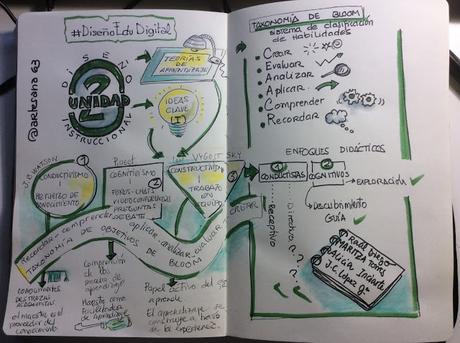 #DiseñoEduDigital
DISEÑO
2
UNIDAD
INSTRUCCIONAL
TEORÍAS
DE
APRENDIZAJE
IDEAS
CLAVE
J.B. WATSON
PIAGET
VYGOTSKY
1
CONDUCTIVISMO
2
COGNITIVISMO
FOROS - CHATS
VIDEOCONFERENCIAS
PREGUNTAS
DEBATE
3
CONSTRUCTIVISMO
TRABAJO
EN
EQUIPO
Recordar - comprender - aplicar - analizar - evaluar
CREAR
TAXONOMÍA DE OBJETIVOS DE BLOOM
CONOCIMIENTOS
DESTREZAS
el maestro es el
proveedor del
conocimiento
Comprensión
de los
Maestro como
Facilitador
de Aprendizaje
Papel activo del
aprende
El aprendizaje se
construye a través
de la experiencia
TAXONOMÍA DE BLOOM
sistema de clasificación
de Habilidades
Crear
Evaluar
Analizar
Aplicar
Comprender
Recordar
ENFOQUES DIDÁCTICOS
1
CONDUCTISTAS
2
COGNITIVOS
EXPLORACIÓN
Receptivo
Directivo
DESCUBRIMIENTO
GUÍA
? ? ?
Maritza Torres
Alicia Iriarte
J.C. López G.